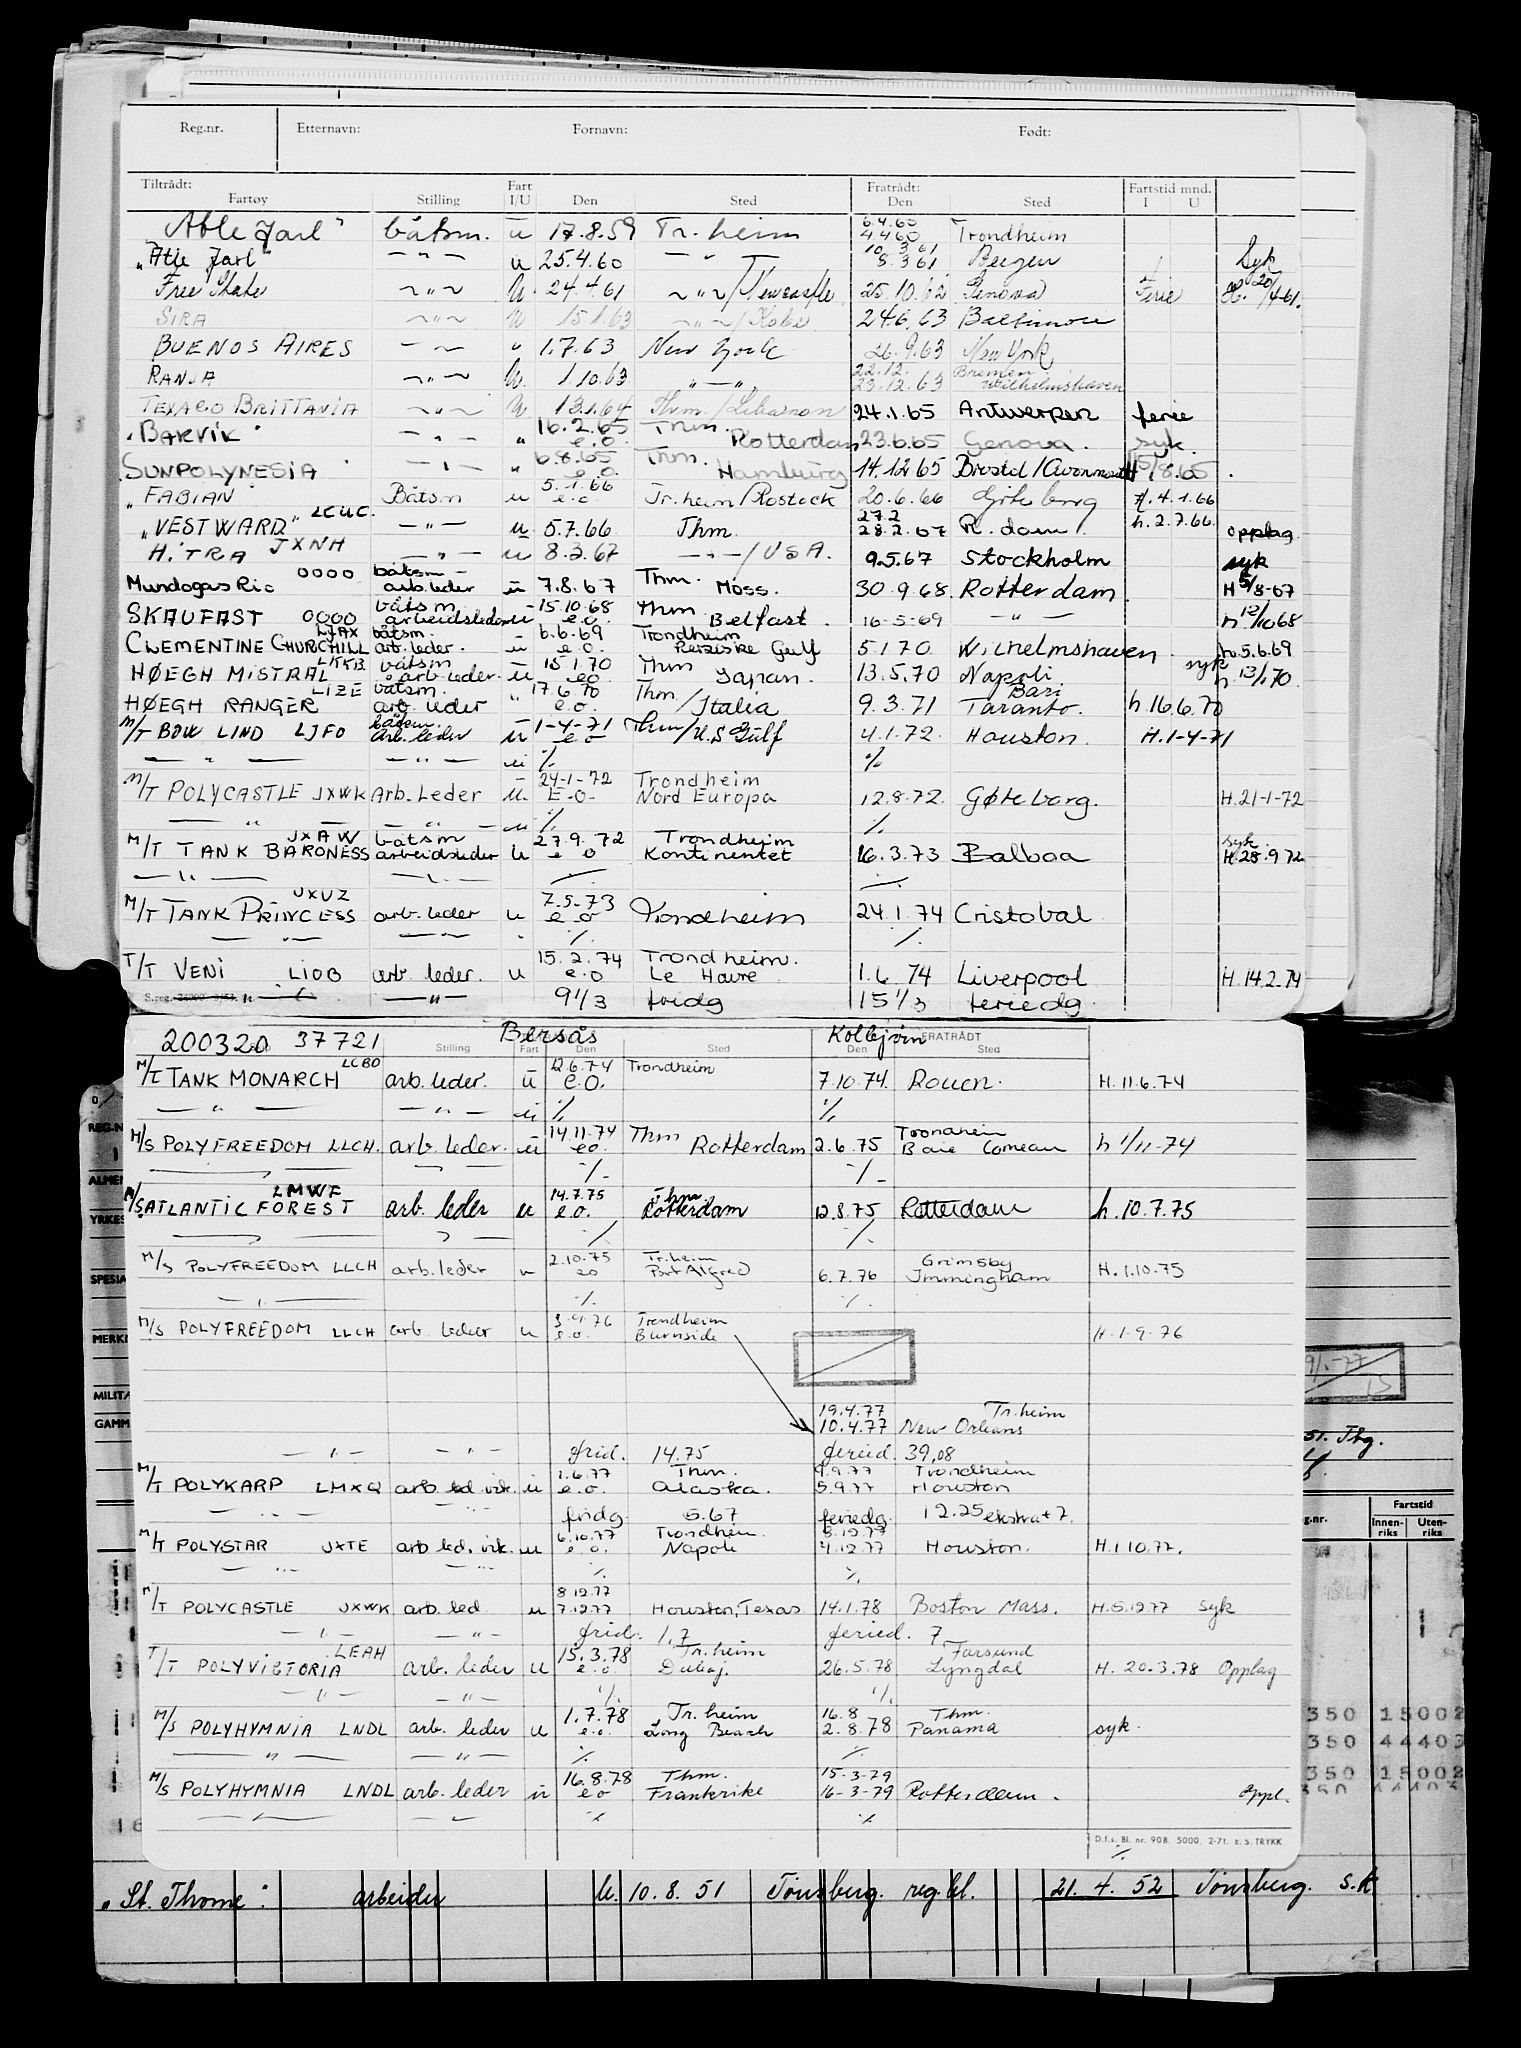 Reg.nr. Etternavn: Fornavn: Født:
Tiltrådt: Fratrådt: Fartstid mnd.
Fartøy Stilling Fart I/U Den Sted Den Sted I U
"Atle Jarl" båtsm. u 17.8.59 Tr. heim 6.4.60 4.4.60 Trondheim
"Atle Jarl" — " — u 25.4.60 — " — 10.3.61 8.3.61 Bergen Syk
Free State ~ " ~ U 24.4.61 ~ " ~ / Newcastle 25.10.62 Genova Ferie H. 20/4-61.
SIRA ~ " ~ U 15.1.63 ~ " ~ / Kobe 24.6.63 Baltimore
BUENOS AIRES — " ~ " 1.7.63 New York 26.9.63 New York
RANJA ~ " ~ U. 1.10.63 " — " 22.12. Bremen 23.12.63 Wilhelmshaven
TEXACO BRITTANIA ~ " ~ U 13.1.64 Thm. / Libanon 24.1.65 Antwerpen ferie
"BARVIK" — " — " 16.2.65 e.o. Trhm. Rotterdam 23.6.65 Genova. syk.
SUNPOLYNESIA — " — " 6.8.65 e.o. Trhm. Hamburg 14.12.65 Bristol/Avonmouth 15/8.65
"FABIAN" Båtsm u 5.1.66 e.o Tr.heim/Rostock 20.6.66 Göteborg H.4.1.66
"VESTWARD" LCUC. — " — u 5.7.66 Thm. 27.2 28.2.67 R.dam h.2.7.66. opplag
HITRA JXNH — " — u 8.3.67 — " — / USA. 9.5.67 Stockholm syk
Mundogas Rio 0000 båtsm - arb.leder u 7.8.67 Thm. Moss. 30.9.68 Rotterdam. H 5/8-67
SKAUFAST 0000 båtsm arbeidsleder u 15.10.68 e.o. Thm Belfast. 16-5-69 — " — h 12/10 68
CLEMENTINE CHURCHILL LJAX båtsm. arb. leder. u 6.6.69 e.o. Trondheim Persiske Gulf 5.1.70 Wilhelmshaven. h.5.6.69
HØEGH MISTRAL LKKB båtsm arb. leder. u 15.1.70 e.o Thm Japan. 13.5.70 Napoli syk h. 13/1.70
HØEGH RANGER LIZE båtsm. arb. leder " 17.6.70 e.o. Thm / Italia 9.3.71 Bari Taranto. h.16.6.70
M/T BOW LIND LJFO båtsm. arb. leder u 1-4-71 e.o Thm/U.S Gulf 4.1.72. Houston. H.1-4-71
— " — — " — u % %
M/T POLYCASTLE JXWK Arb. Leder u. 24-1-72 E-O- Trondheim Nord Europa 12.8.72. Gøteborg. H.21-1-72
— " — — " — u % %
M/T TANK BARONESS JXAW båtsm arbeidsleder u 27.9.72 e o Trondheim Kontinentet 16.3.73 Balboa syk. H.28.9 72
— " — — " — % %
M/T TANK PRINCESS JXUZ arb. leder u 7.5.73 e.o Trondheim 24.1.74 Cristobal
— " — — " — " % %
T/T VENI LIOB arb. leder. u 15.2.74 e.o Trondheim. Le Havre 1.6.74 Liverpool H.14.2.74
— " — — " — 9 1/3 fridg 15 1/3 feriedg.
200320 37721 Bersås Kolbjørn FRATRÅDT
Stilling Fart Den Sted Den Sted
M/T TANK MONARCH LCBO arb. leder. u 12.6.74 e.o. Trondheim 7.10.74. Rouen. H.11.6.74
— " — — " — u % %
M/S POLYFREEDOM LLCH. arb. leder. u 14.11.74 eo. Thm Rotterdam 2.6.75 Trondheim Baie Comeau h 1/11-74
— " — % %
M/S ATLANTIC FOREST LMWF arb. leder u 14.7.75 e.o. Thm Rotterdam 12.8.75 Rotterdam h.10.7.75
— " — % %
M/S POLYFREEDOM LLCH arb. leder u 2.10.75 eo Tr.heim Port Alfred 6.7.76 Grimsby Immingham H.1.10.75
— " — % %
M/S POLYFREEDOM LLCH arb. leder u 3.9.76 e.o. Trondheim Burnside H.1.9.76
19.4.77 Tr.heim
10.4.77 New Orleans
— " — — " — frid. 14.75 feried. 39,08
M/T POLYKARP LMXQ arb. led. vik. u 1.6.77 e.o. Thm. Alaska. 9.9.77 Trondheim 5.9.77 Houston
— " — — " — fridg 5.67 feriedg. 12.25 ekstra + 7.
M/T POLYSTAR JXTE arb. led. vik. u 6.10.77 e.o. Trondheim. Napoli 8.12.77 4.12.77 Houston. H.1.10.77.
— " — — " — % %
M/T POLYCASTLE JXWK arb. led. u 8.12.77 7.12.77 Houston, Texas 14.1.78 Boston Mass. H.5.12.77 Syk
— " — — " — frid. 1,7 feried. 7
T/T POLYVICTORIA LEAH arb. leder u 15.3.78 e.o. Tr.heim Dubaj. 26.5.78 Farsund Lyngdal H. 20.3.78 Opplag
— " — — " — % %
M/S POLYHYMNIA LNDL arb. leder u 1.7.78 e.o. Tr.heim Long Beach 16.8 Thm. 2.8.78 Panama syk.
— " — — " — % %
M/S POLYHYMNIA LNDL arb. leder u 16.8.78 eo Thm. Frankrike 15-3-79 16-3-79 Rotterdam. Oppl.
— " — — " — % %
D.f.s. Bl. nr. 908. 5000. 2-71. E.S. TRYKK
%
"St. Thome". arbeider U. 10.8.51 Tønsberg. reg.bl. 21.4.52 Tønsberg. s.k
REG.N
ALMEN
YRKES
SPESIA
MERKN
MILITÆ
GAMM
Fartstid
g.nr. Innen-riks Uten-riks
350 15002
350 44403
350 15002